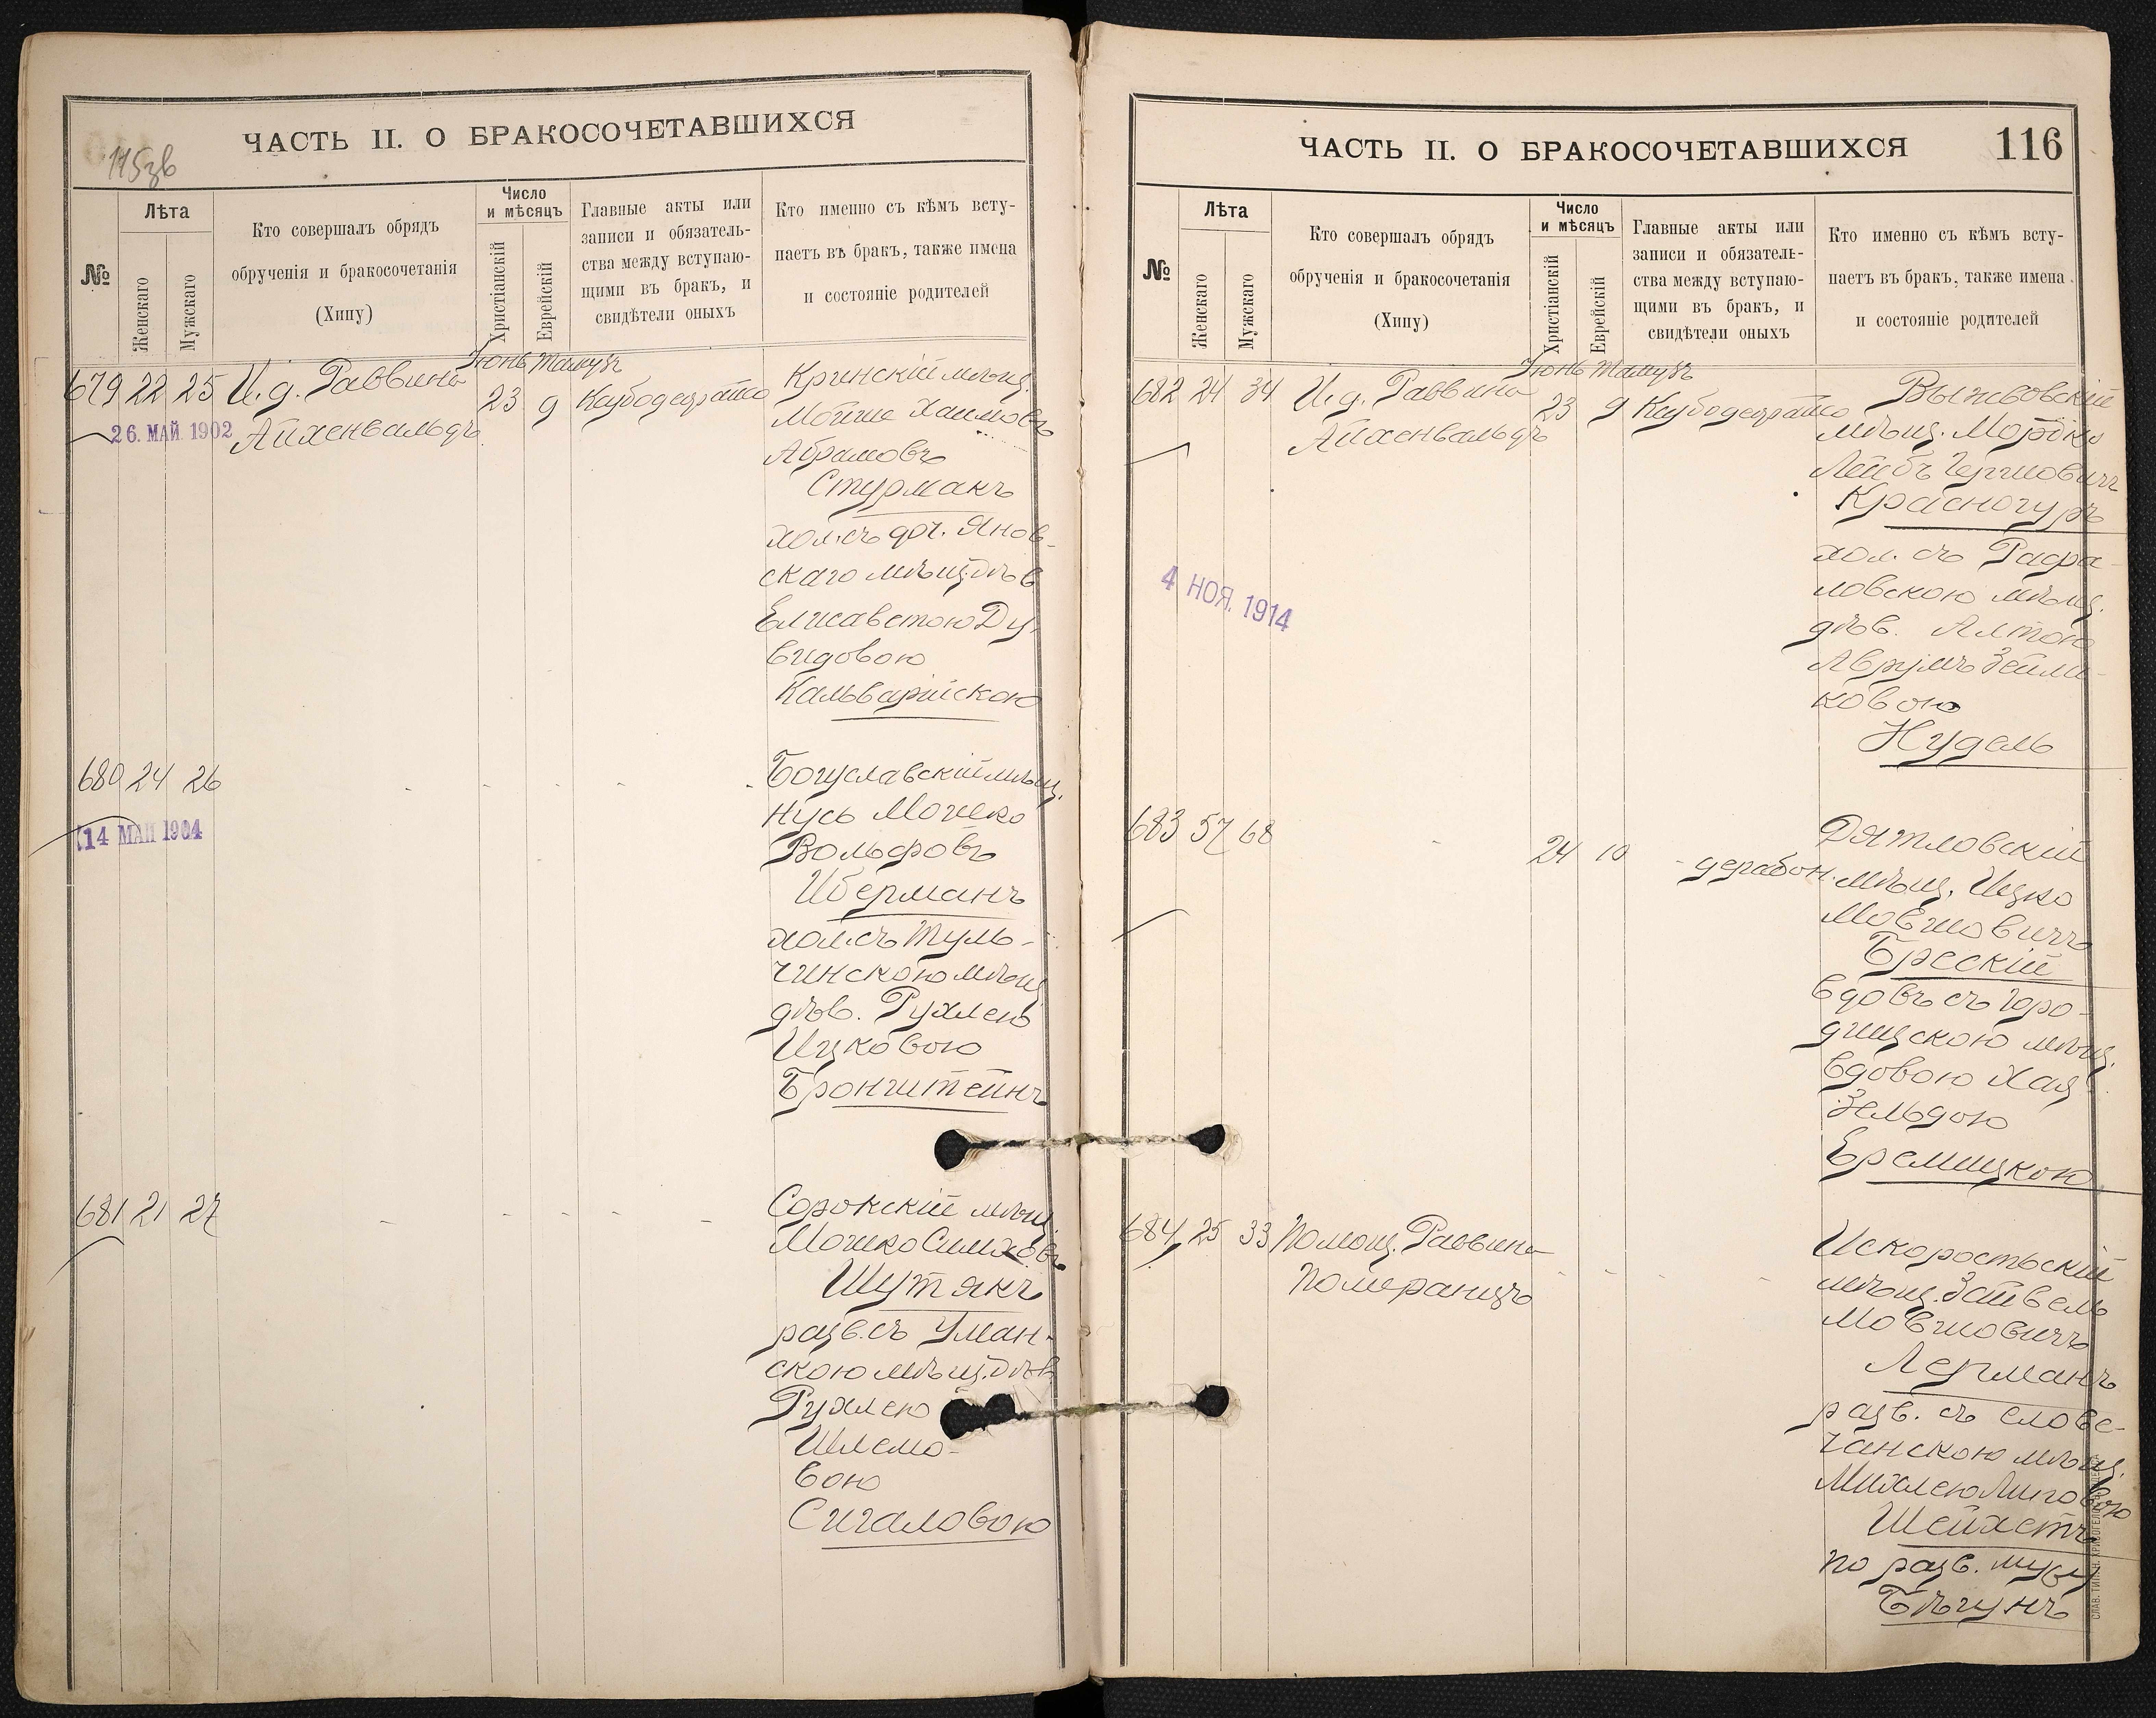 ЧАСТЬ II. О БРАКОСОЧЕТАВШИХСЯ
№
Лѣта
Женскаго
Мужскаго
Кто совершалъ обрядъ
обрученія и бракосочетанія
(Хипу)
Число
и мѣсяцъ
Христіанскій
Еврейскій
Главные акты или
записи и обязатель-
ства между вступаю-
щими въ бракъ, и
свидѣтели оныхъ
Кто именно съ кѣмъ всту-
паетъ въ бракъ, также имена
и состояніе родителей
Іюнь Тамузъ
679 22 25 И.д. Раввина 23 9
Айхенвальдъ
26. МАЙ 1902
Кринскій мѣщ.
Мойше Хаимовъ
Абрамовъ
Стурмакъ
хол. съ доч. Янов-
скаго мѣщ. дѣв
Елисаветою Ду-
видовою
Кальварійскою
680 24 26
14 МАЙ 1904
Богуславскій мѣщ.
Нусь Мошко
Вольфовъ
Иберманъ
хол. съ Туль-
чинскою мѣщ
дѣв. Рухлею
Ицковою
Бронштейнъ
681 21 27
Сорокскій мѣщ
Мошко Симховъ
Шутякъ
разв. съ Уман-
скою мѣщ. дѣв
Рухлею
Шлемо-
вою
Сигаловою
ЧАСТЬ II. О БРАКОСОЧЕТАВШИХСЯ 116
№
Лѣта
Женскаго
Мужскаго
Кто совершалъ обрядъ
обрученія и бракосочетанія
(Хипу)
Число
и мѣсяцъ
Христіанскій
Еврейскій
Главные акты или
записи и обязатель-
ства между вступаю-
щими въ бракъ, и
свидѣтели оныхъ
Кто именно съ кѣмъ всту-
паетъ въ бракъ, также имена
и состояніе родителей
Іюнь Тамузъ
682 24 34 И.д. Раввина 23 9
Айхенвальдъ
4 НОЯ. 1914
Выжвовскій
мѣщ. Мордко
Лейбъ Гершовичъ
Красногуръ
хол. съ Рафа-
ловскою мѣщ.
дѣв. Алтою
Аврумъ Зейли-
ковою
Нудель
683 57 68 24 10
Дятловскій
мѣщ. Ицко
Мовшовичъ
Брескій
вдовъ съ Горо-
дищскою мѣщ.
вдовою Хая
Зельдою
Еремицкою
684 25 33 Помощ. Раввина
Померанцъ
Искоростьскій
мѣщ. Зайвель
Мовшовичъ
Лерманъ
разв. съ Слове-
чанскою мѣщ.
Михлею
Шейхетъ
по разв. мужу
Бѣгунъ